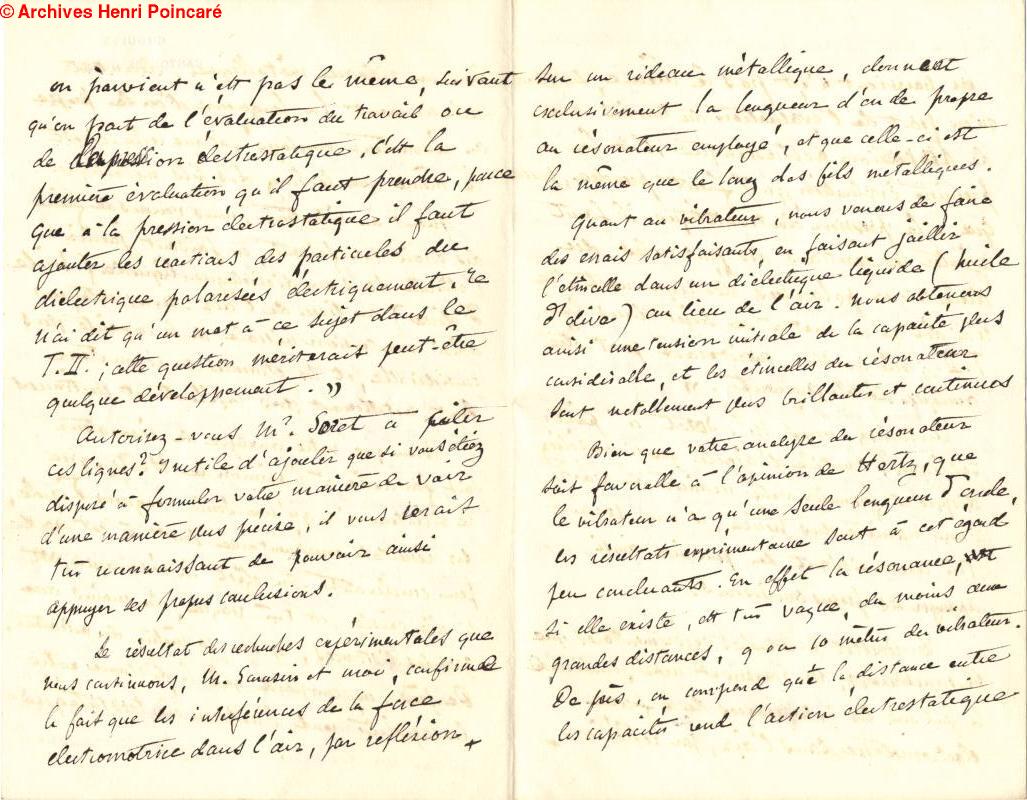 © Archives Henri Poincaré
on parvient n'est pas le même, suivant
qu'on part de l'évaluation du travail ou
de la pression électrostatique. C'est la
première évaluation qu'il faut prendre, parce
que à la pression électrostatique il faut
ajouter les réactions des particules du
diélectrique polarisées électriquement. Je
n'ai dit qu'un mot à ce sujet dans le
T. II. ; cette question mériterait peut-être
quelque développement. »
Autorisez-vous Mr. Soret à citer
ces lignes? Inutile d'ajouter que si vous étiez
disposé à formuler votre manière de voir
d'une manière plus précise, il vous serait
très reconnaissant de pouvoir ainsi
appuyer ses propres conclusions.
Le résultat des recherches expérimentales que
nous continuons, M. Sarasin et moi, confirme
le fait que les interférences de la force
electromotrice dans l'air, par réflexion
sur un rideau métallique, donnent
exclusivement la longueur d'onde propre
au résonateur employé, et que celle-ci est
la même que le long des fils métalliques.
Quant au vibrateur, nous venons de faire
des essais satisfaisants, en faisant jaillir
l'étincelle dans un diélectrique liquide (huile
d'olive) au lieu de l'air. Nous obtenons
ainsi une tension initiale de la capacité plus
considérable, et les étincelles du résonateur
sont notablement plus brillantes et continues
Bien que votre analyse du résonateur
soit favorable à l'opinion de Hertz, que
le vibrateur n'a qu'une seule longueur d'onde,
les résultats expérimentaux sont à cet égard
peu concluants. En effet la résonance,
si elle existe, est très vague, du moins aux
grandes distances, 9 ou 10 mètres du vibrateur.
De près, on comprend que la distance entre
les capacités rend l'action électrostatique